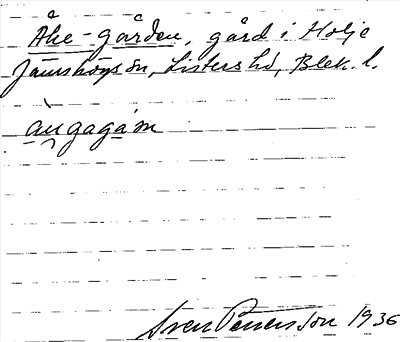 Åke-gården, gård i Holje
Jämshögs sn, Listers hd, Blek. l.
àu̯gagám
Sven Petersson 1936